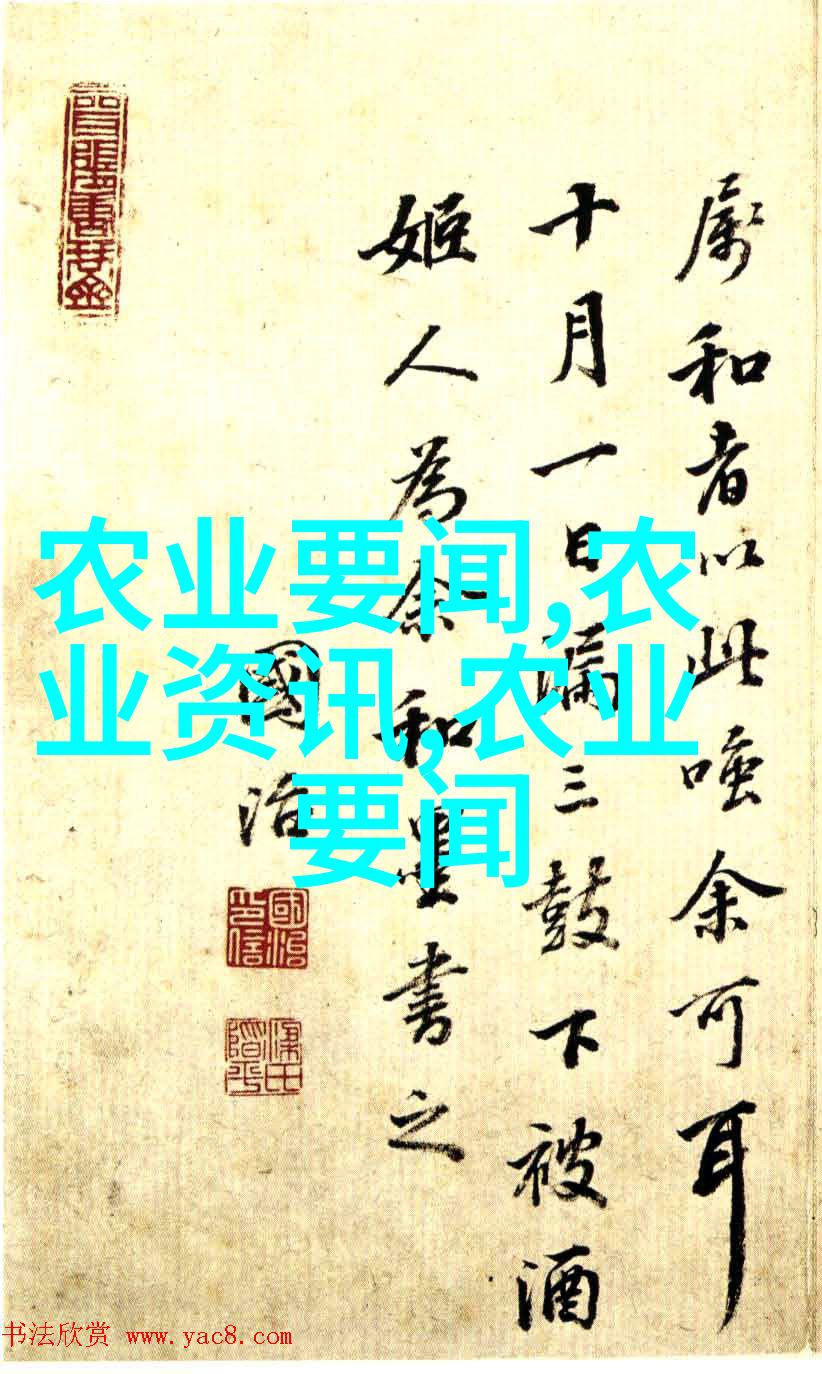 属和者以此余可耳
十月一日漏三鼓下被酒
姬人為余和墨書之
國治
國治印信
农业要闻,农
业资讯,农业
要闻
书法欣赏 www.yac8.com